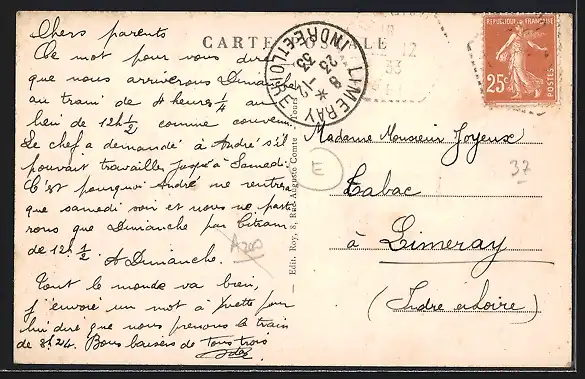 CARTE POSTALE
Chers parents
Ce mot pour vous dire
que nous arriverons Dimanche
au train de 4 heures 1/4 au
lieu de 12h 1/2 comme convenu.
Le chef a demandé à André s'il
pouvait travailler jusqu'à Samedi.
C'est pourquoi André ne rentrera
que samedi soir et nous ne parti
rons que Dimanche par
de 12h 1/2. A Dimanche.
Tout le monde va bien,
j'envoie un mot à Yvette pour
lui dire que nous prenons le train
de 8h24. Bons baisers de Tous trois
Edit. Roy, 8, Rue Auguste-Comte
LIMERAY
INDRE-ET-LOIRE
8 *
23-12
33
12
33
REPUBLIQUE FRANÇAISE
25c
POSTES
Madame Monsieur Joyeux
Tabac
à Limeray
(Indre et Loire)
E
37